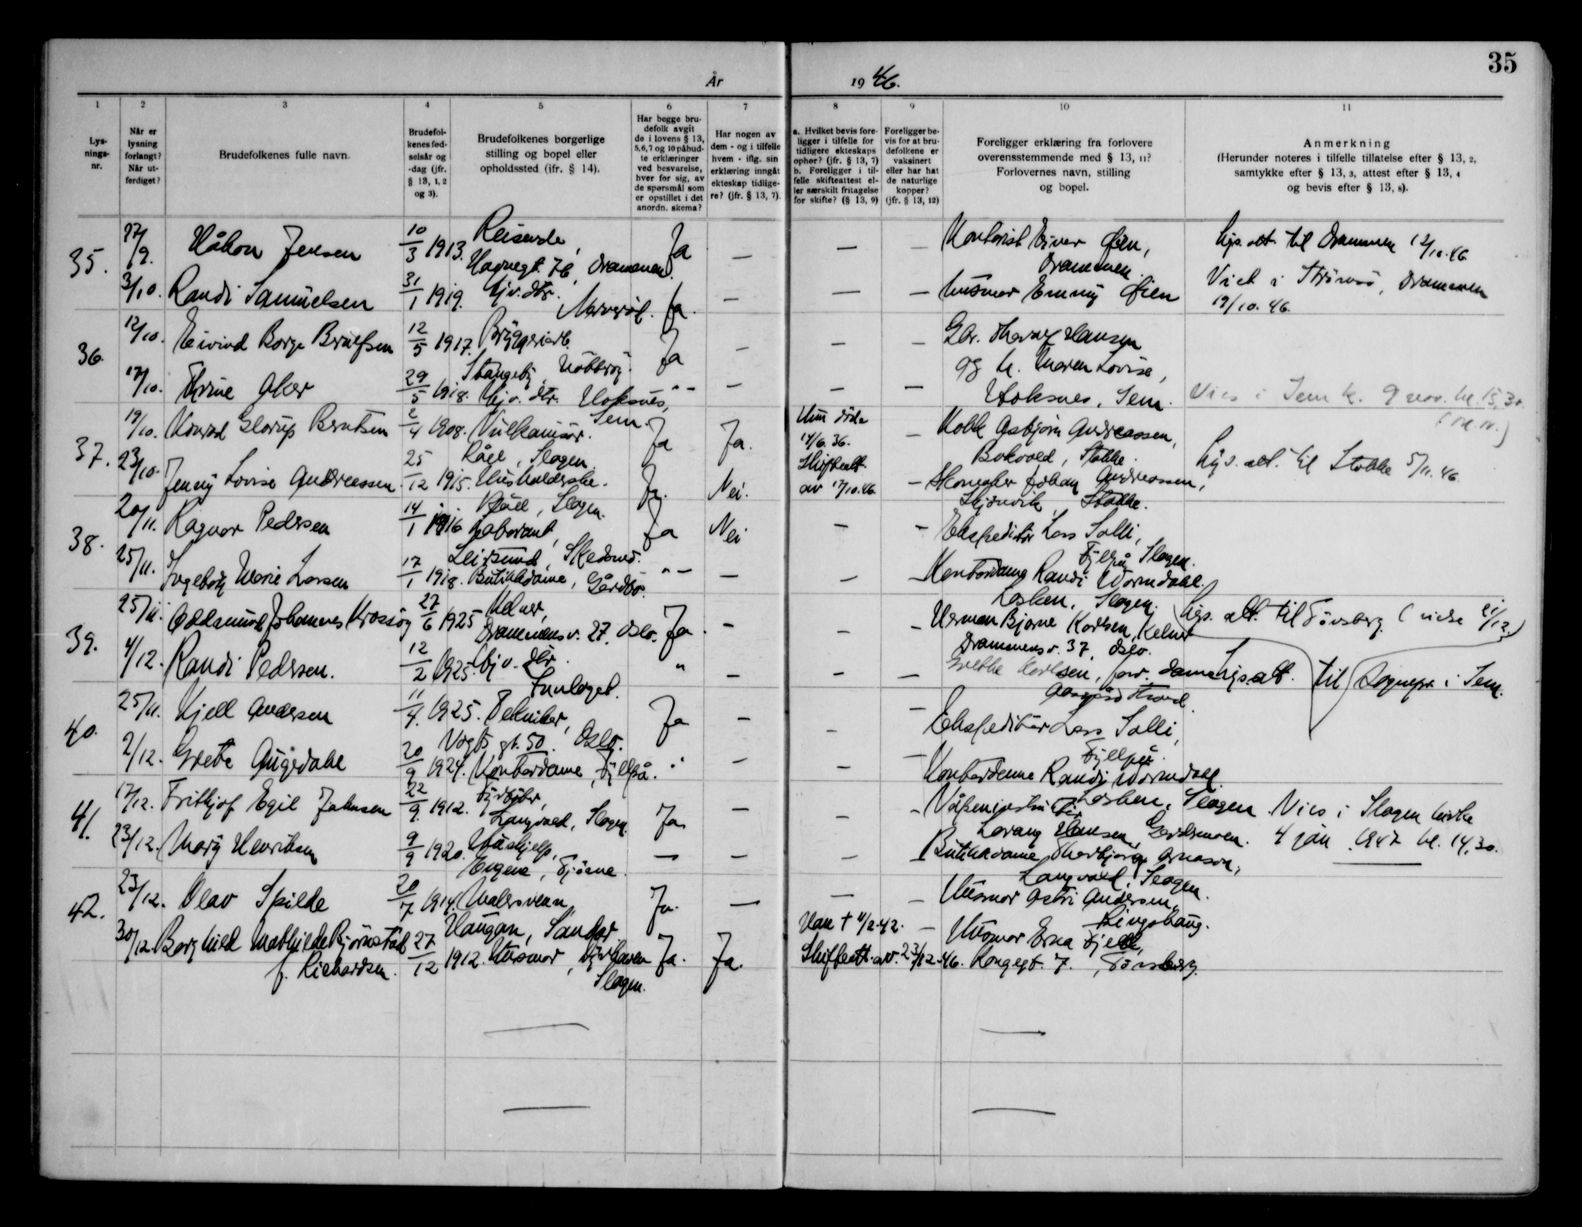 35
År 1946.
1
Lys-
nings-
nr.
2
Når er
lysning
forlangt?
Når ut-
ferdiget?
3
Brudefolkenes fulle navn.
4
Brudefol-
kenes fød-
selsår og
-dag (jfr.
§ 13, 1, 2
og 3).
5
Brudefolkenes borgerlige
stilling og bopel eller
opholdssted (jfr. § 14).
6
Har begge bru-
defolk avgit
de i lovens § 13,
5,6,7 og 10 påbud-
te erklæringer
ved besvarelse,
hver for sig, av
de spørsmål som
er opstillet i det
anordn. skema?
7
Har nogen av
dem - og i tilfelle
hvem - iflg. sin
erklæring inngått
ekteskap tidlige-
re? (jfr. § 13, 7).
8
a. Hvilket bevis fore-
ligger i tilfelle for
tidligere ekteskaps
ophør? (jfr. § 13, 7)
b. Foreligger i til-
felle skifteattest el-
ler særskilt fritagelse
for skifte? (§ 13, 9)
9
Foreligger be-
vis for at bru-
defolkene er
vaksinert
eller har hat
de naturlige
kopper?
(jfr. § 13, 12)
10
Foreligger erklæring fra forlovere
overensstemmende med § 13, 11?
Forlovernes navn, stilling
og bopel.
11
Anmerkning
(Herunder noteres i tilfelle tillatelse efter § 13, 2,
samtykke efter § 13, 3, attest efter § 13, 4
og bevis efter § 13, 8).
35. 27/9. Håkon Jensen 10/3 1913. Reisende, Ja — — — Kontorist Einar Øien, Lys.att. til Drammen 12/10.46
Havnegt. 76, Drammen. Drammen.
3/10. Randi Samuelsen 31/1 1919. Hjv. dtr. Ja. — — — Husmor Emmy Øien Viet i Strømsø, Drammen
19/10.46.
36 12/10. Eivind Borge Brulfsen 12/5 1917. Bryggeriarb. Ja — — Gbr. Hansen
Stangeby, Nøtterøy. og h. Maren Lovise,
17/10. Thrine Aker 29/5 1918. Hjv. dtr. Hoksnes, " — — — — Hoksnes, Sem. Vies i Sem k. 9 nov. kl. 15,30
Sem.
37. 19/10. Konrad Glorup Berntsen 2/4 1908. Vulkanisør. Ja Ja. Hun døde 14/6.36. — Kolk Asbjørn Andreassen,
Råel, Slagen Bokoved, Stokke. Lys.att. til Stokke 5/11.46
23/10 Jenny Lovise Andreassen 25/12 1915. Husholderske. Ja. Nei. Skifteatt. av 17/10.46 — Johan Andreassen,
Råel, Slagen. Stokke.
38. 20/11. Ragnar Pedersen 14/1 1916 Laborant, Ja Nei — — Ekspeditør Lars Solli,
Leirsund, Skedsmo. Fjellpå, Slagen.
25/11. Ingeborg Marie Larsen 17/1 1918. Butikkdame, Gårdbo. " — — — — Kontordame Randi Wormdahl.
Lasken, Slagen.
39. 25/11. Oddmund Johannes Krossøy 27/6 1925 Kelner, Ja. — — — Herman Bjarne Karlsen, Kelner Lys. att. til Tønsberg (
Drammensv. 27, Oslo. Drammensv. 37, Oslo.
4/12. Randi Pedersen. 12/2 1925. Hjv. dtr. " — — — Grethe Karlsen, Lys.att. til Sognepr. i Sem.
40. 25/11. Kjell Andersen 11/4. 1925. Tekniker, Ja — — — Ekspeditør Lars Solli,
Vogts gt. 50. Oslo. Fjellpå.
2/12. Grete Augedahl 20/9 1924. Kontordame, Fjellpå. " — — — Kontordame Randi Wormdahl
Lasken, Slagen
41. 17/12. Frithjof Egil Johnsen 22/9 1912. Fyrbøter, Ja — — — Vies i Slagen kirke
Langved, Slagen Hansen, 4 jan. 1947 kl. 14,30.
23/12. Mary Henriksen 9/9 1920. Hushjelp, — — — Butikkdame
Tjøme. Langved, Slagen.
42. 23/12. Olav Spilde 20/7 1914. Malersvenn, Ja. — — — Husmor Astri Andersen,
Haugan, Sandar Ringshaug.
30/12 Borghild Mathilde Bjørnstad 27/12 1912. Husmor, Ja. Ja. Mann † 11/2-42. — Husmor Erna Fjell,
f. Richardsen. Slagen. Skifteatt. av. 23/12.46. Kongegt. 7, Tønsberg.